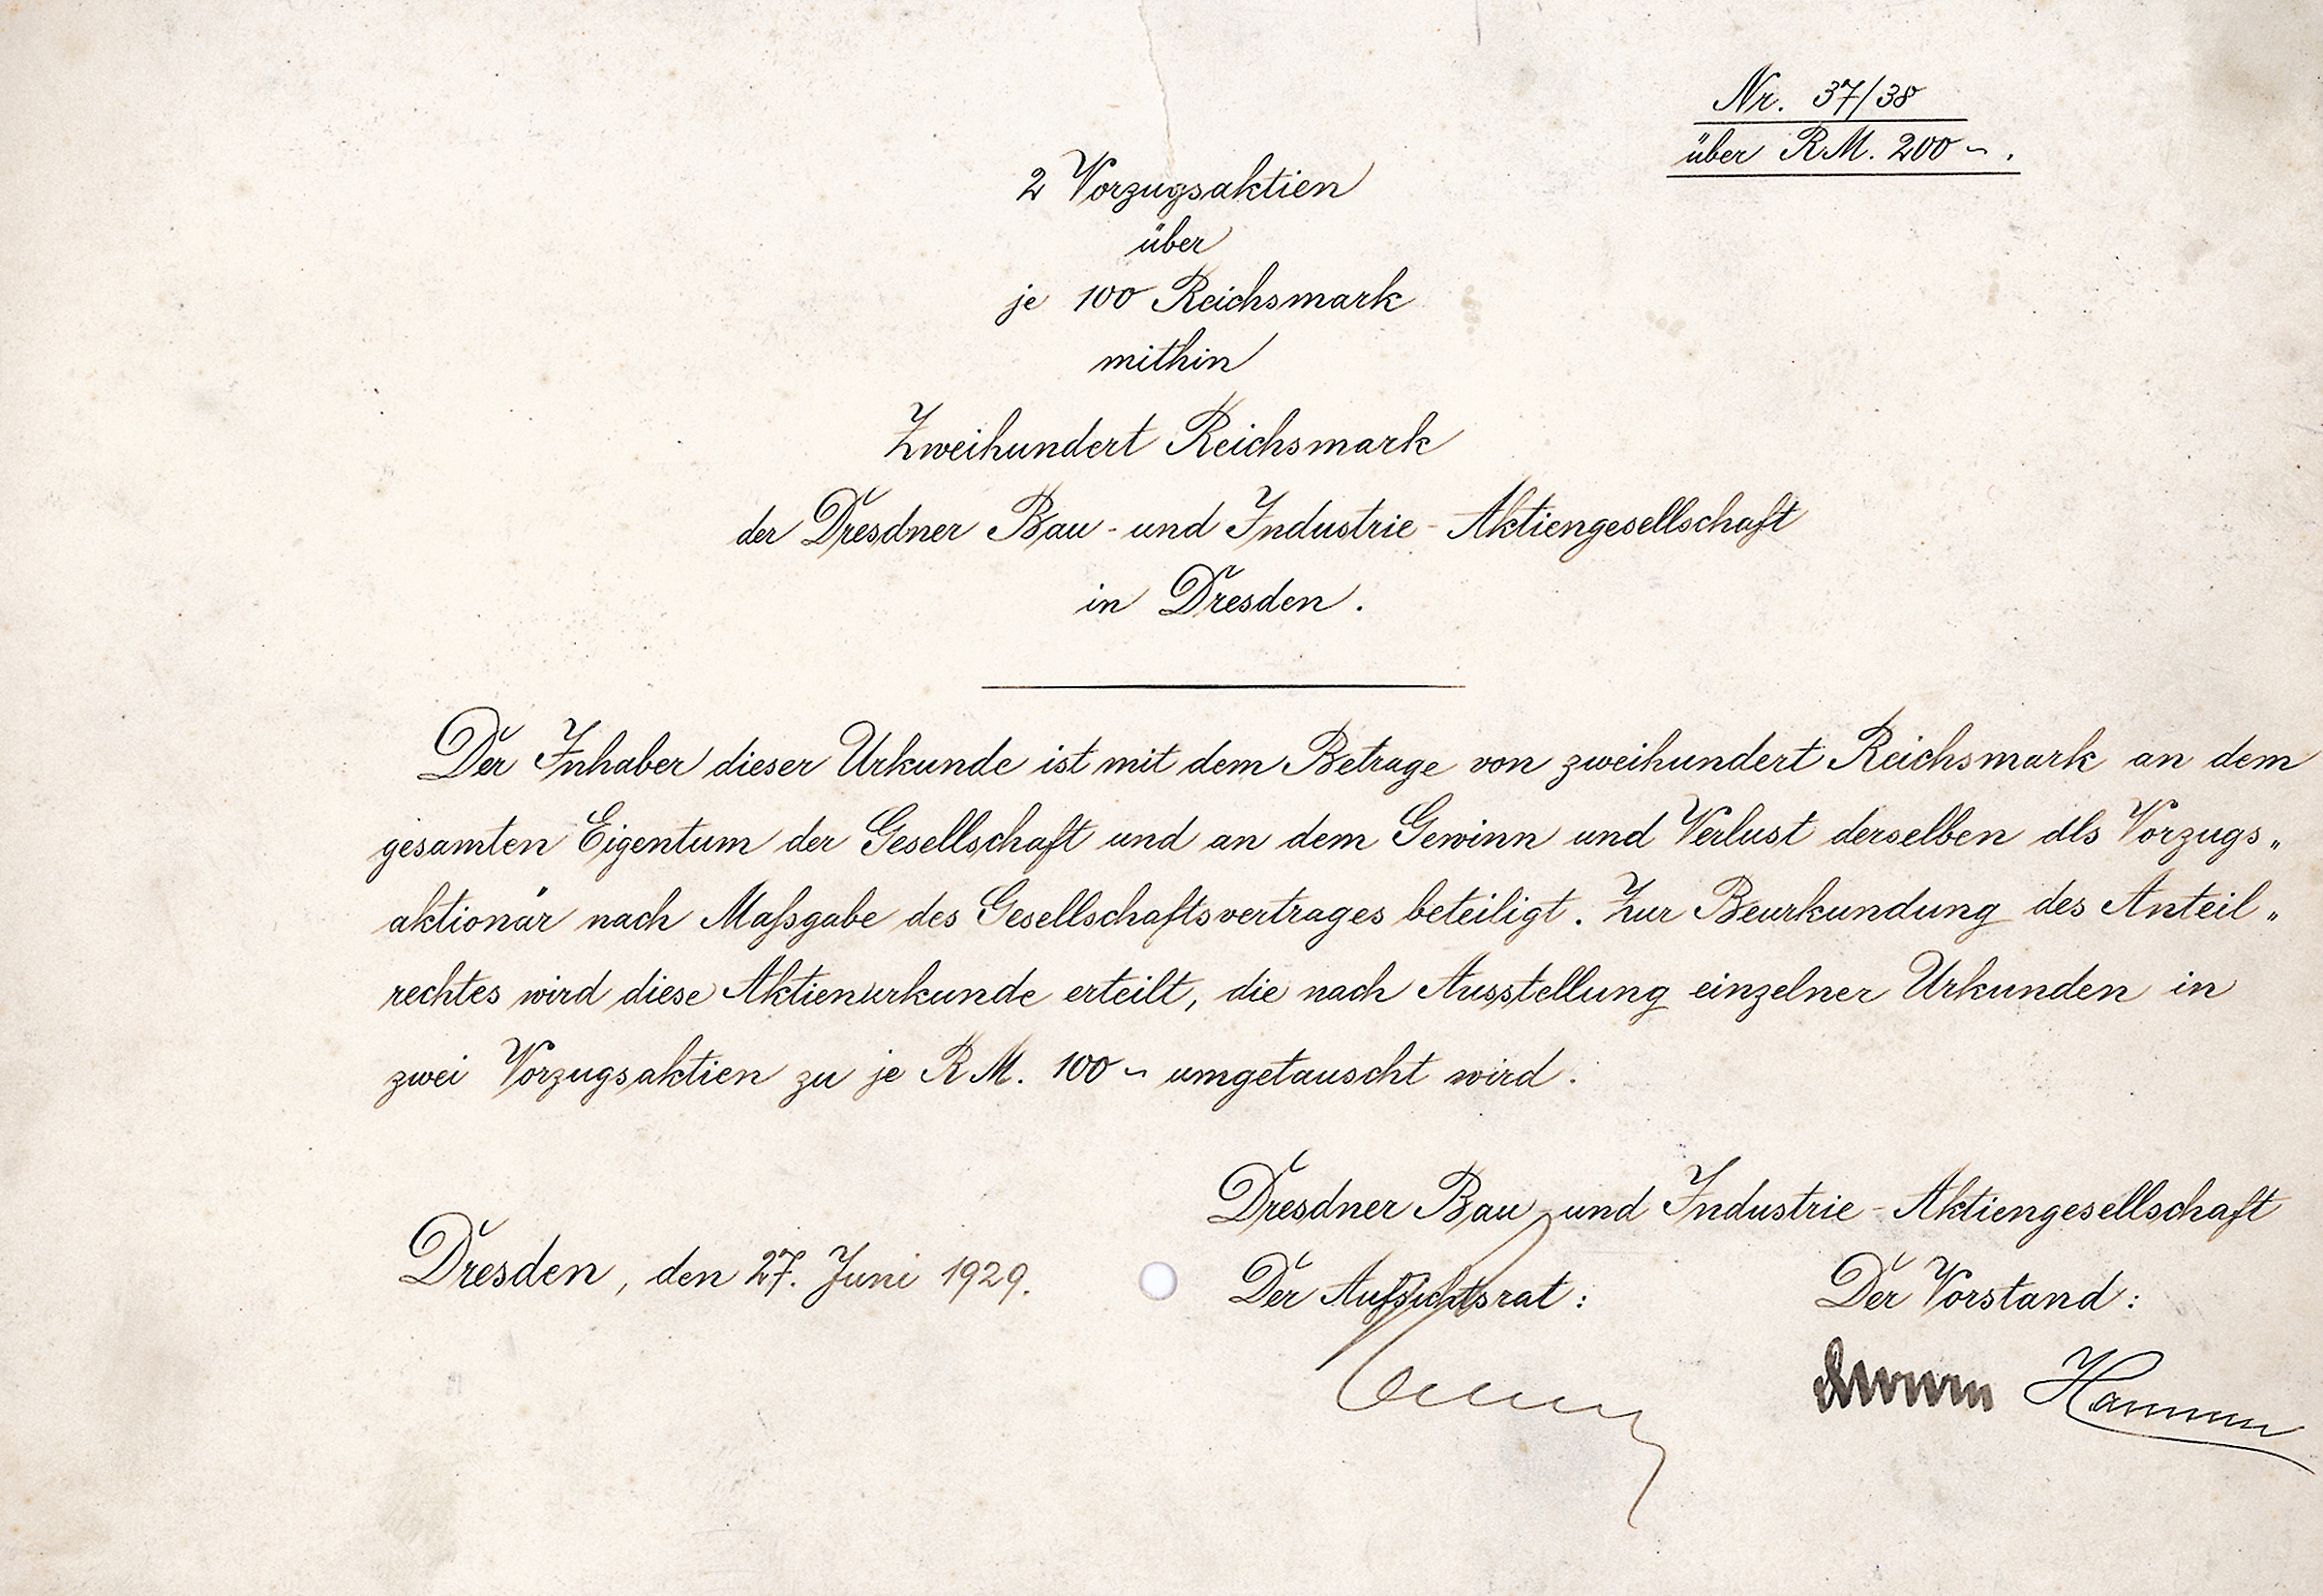 Nr. 37/38
über RM. 200 ~.
2 Vorzugsaktien
über
je 100 Reichsmark
mithin
Zweihundert Reichsmark
der Dresdner Bau- und Industrie-Aktiengesellschaft
in Dresden.
Der Inhaber dieser Urkunde ist mit dem Betrage von zweihundert Reichsmark an dem
gesamten Eigentum der Gesellschaft und an dem Gewinn und Verlust derselben als Vorzugs„
aktionär nach Maßgabe des Gesellschaftsvertrages beteiligt. Zur Beurkundung des Anteil„
rechtes wird diese Aktienurkunde erteilt, die nach Ausstellung einzelner Urkunden in
zwei Vorzugsaktien zu je RM. 100 ~ umgetauscht wird.
Dresdner Bau- und Industrie-Aktiengesellschaft
Dresden, den 27. Juni 1929.
Der Aufsichtsrat: Der Vorstand: